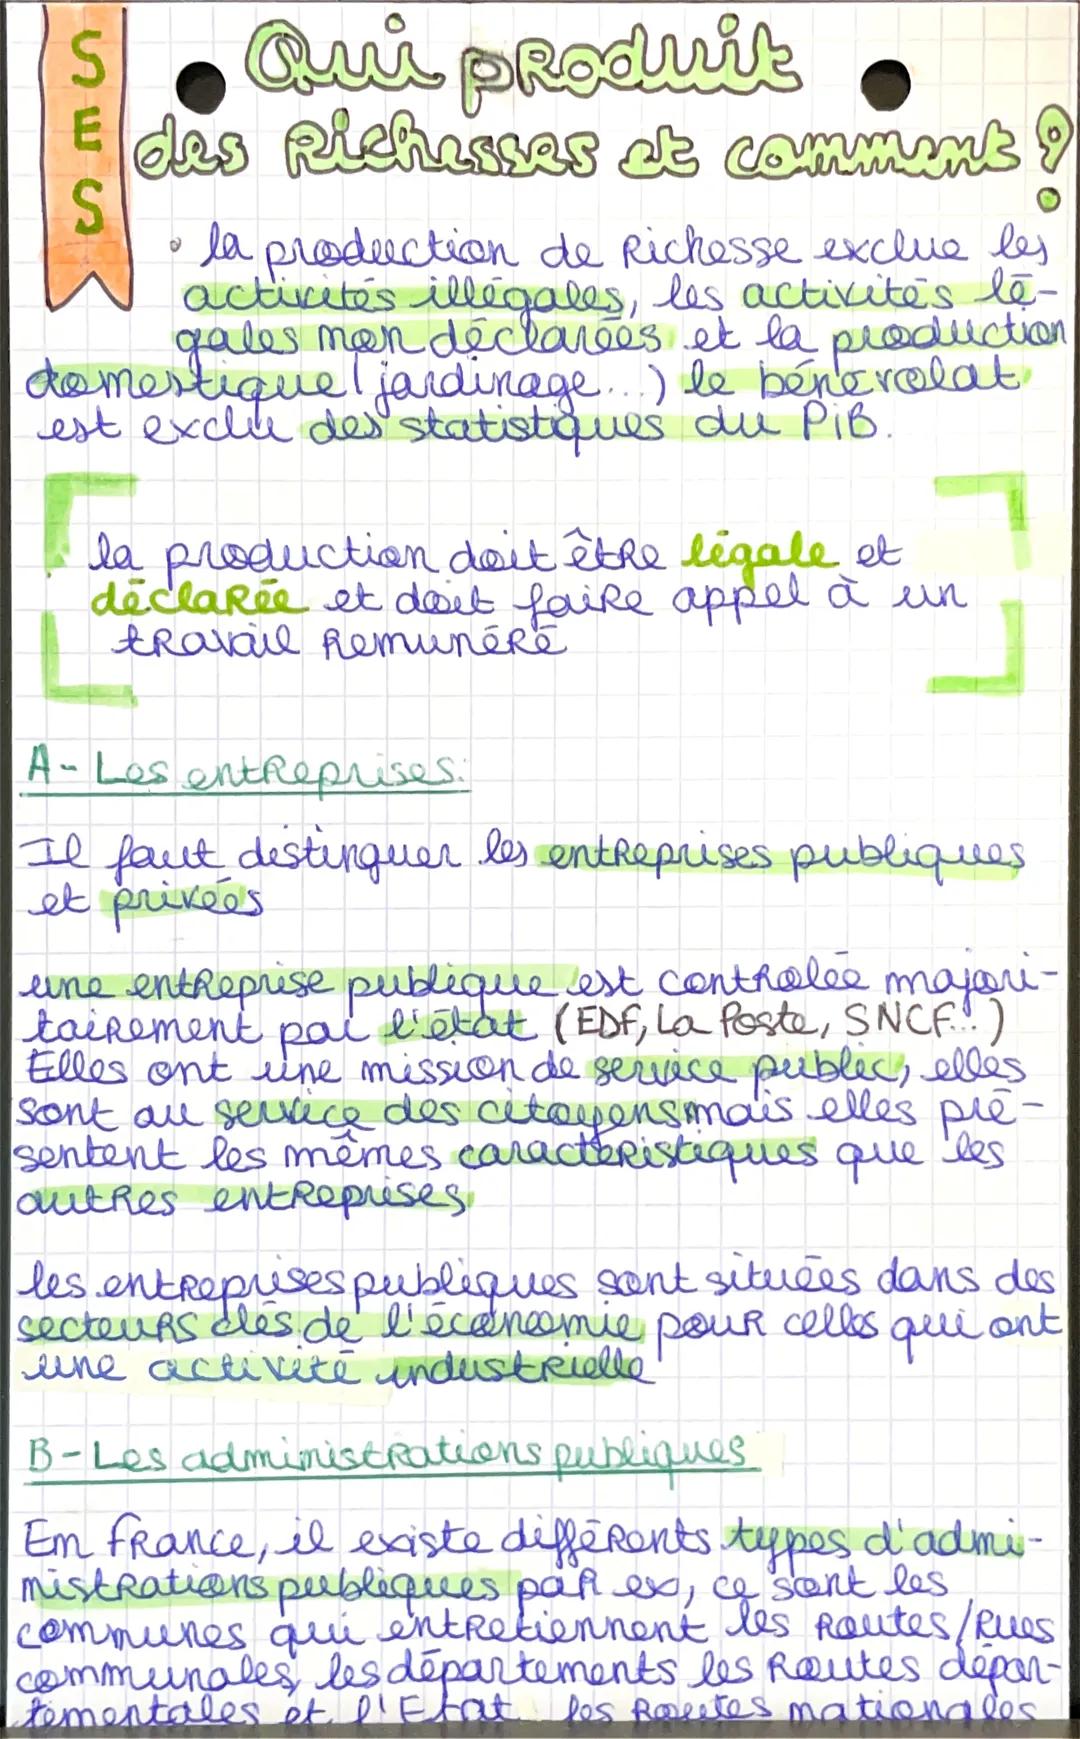 SES
Qui produit
des Richesses et comment ?
• la production de Richesse exclue les
activités illégales, les activités lé-
gales non déclarées et la production
domestique (jardinage...) le bénévolat
est exclu des statistiques du PiB.
la production doit être légale et
déclarée et doit faire appel à un
travail Remunéré
A- Les entreprises:
Il faut distinguer les entreprises publiques
et privées
une entreprise publique est contrôlée majori-
tairement par l'état (EDF, La Poste, SNCF...)
Elles ont une mission de service public, elles
sont au service des citoyens mais elles pré-
sentent les mêmes caractéristiques que les
autres entreprises
les entreprises publiques sont situées dans des
secteurs clés de l'économie pour celles qui ont
une activité industrielle
B- Les administrations publiques
En france, il existe différents types d'admi-
nistrations publiques par ex, ce sont les
communes qui entretiennent les Routes/Rues
communales, les départements les Routes dépar-
tementales et l'Etat les Routes nationales